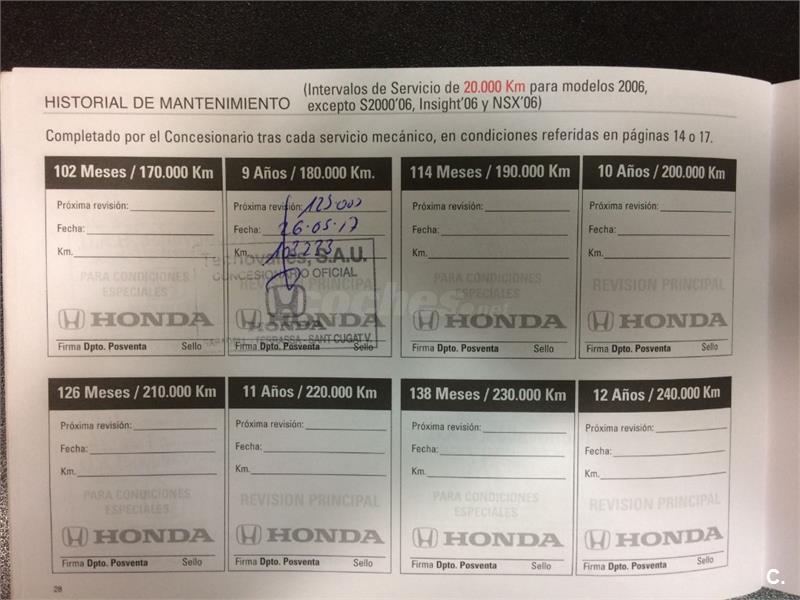 HISTORIAL DE MANTENIMIENTO
(Intervalos de Servicio de 20.000 Km para modelos 2006,
excepto S2000'06, Insight'06 y NSX'06)
Completado por el Concesionario tras cada servicio mecánico, en condiciones referidas en páginas 14 o 17.
102 Meses / 170.000 Km
Próxima revisión:
Fecha:
Km.
PARA CONDICIONES
ESPECIALES
HONDA
Firma Dpto. Posventa Sello
9 Años / 180.000 Km.
Próxima revisión: 125000
Fecha: 26-05-17
Km. 103273
Tecnovalles, S.A.U.
CONCESIONARIO OFICIAL
REVISION PRINCIPAL
HONDA
HONDA
TERRASSA - SANT CUGAT V.
Firma Dpto. Posventa Sello
114 Meses / 190.000 Km
Próxima revisión:
Fecha:
Km.
PARA CONDICIONES
ESPECIALES
HONDA
Firma Dpto. Posventa Sello
10 Años / 200.000 Km
Próxima revisión:
Fecha:
Km.
REVISION PRINCIPAL
HONDA
Firma Dpto. Posventa Sello
coches.net
126 Meses / 210.000 Km
Próxima revisión:
Fecha:
Km.
PARA CONDICIONES
ESPECIALES
HONDA
Firma Dpto. Posventa Sello
11 Años / 220.000 Km
Próxima revisión:
Fecha:
Km.
REVISION PRINCIPAL
HONDA
Firma Dpto. Posventa Sello
138 Meses / 230.000 Km
Próxima revisión:
Fecha:
Km.
PARA CONDICIONES
ESPECIALES
HONDA
Firma Dpto. Posventa Sello
12 Años / 240.000 Km
Próxima revisión:
Fecha:
Km.
REVISION PRINCIPAL
HONDA
Firma Dpto. Posventa Sello
28
C.